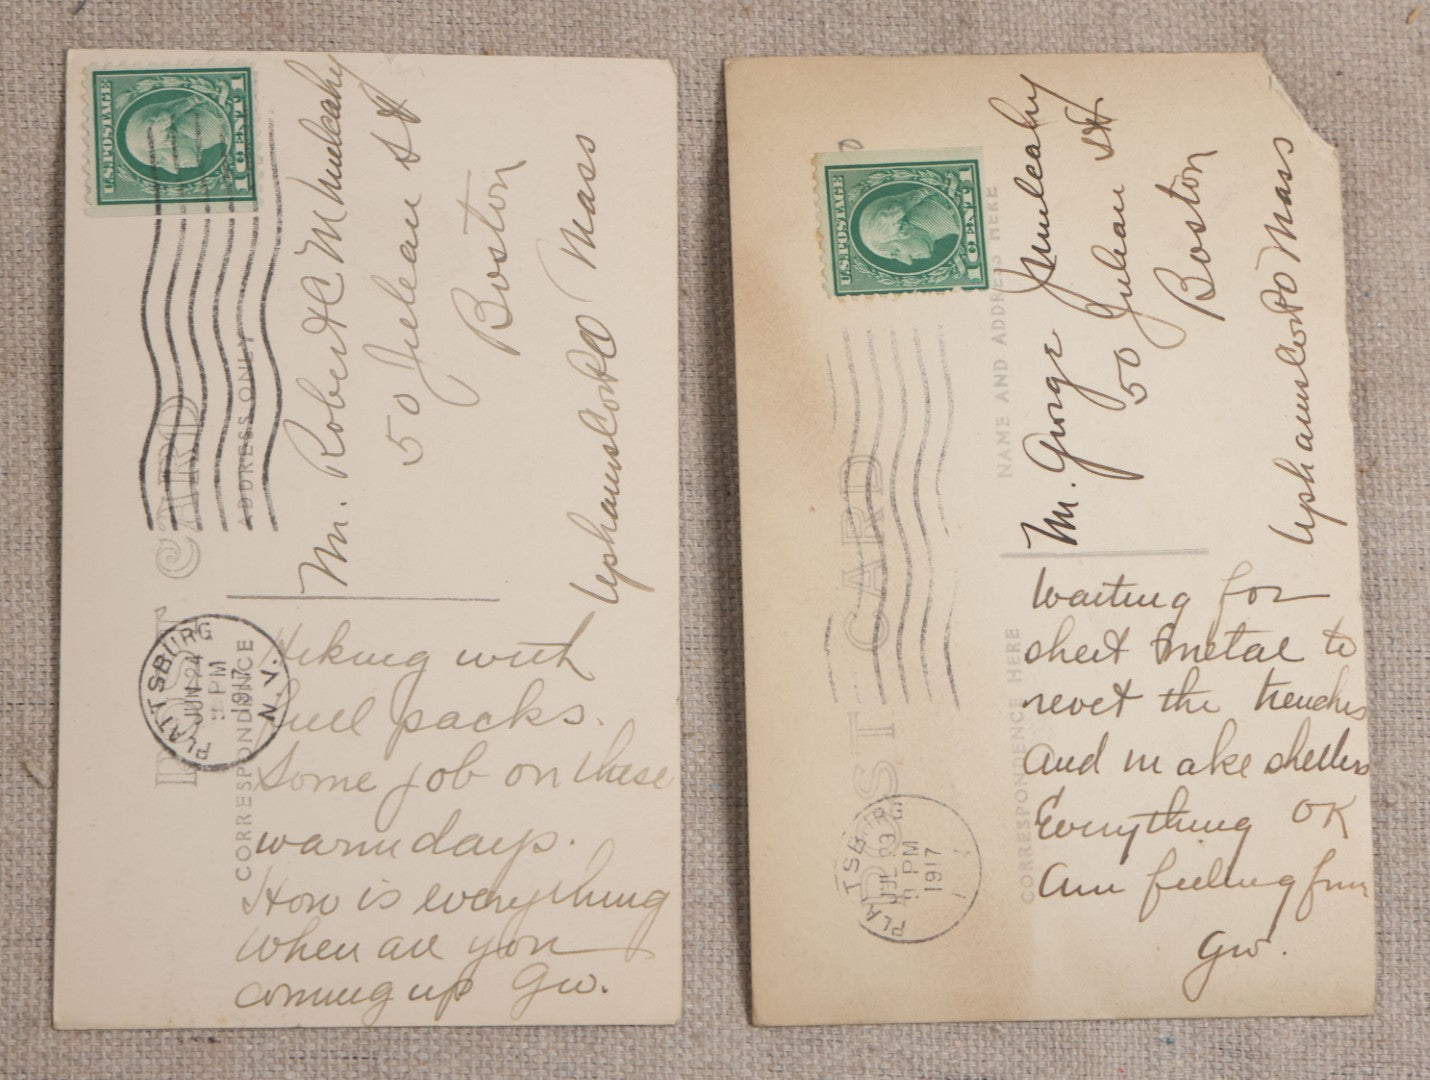 U.S. POSTAGE
1 CENT 1
POST CARD
ADDRESS ONLY
CORRESPONDENCE
PLATTSBURG
N.Y.
JUN 24
9 PM
1917
Mr. Robert C Mulcahy
50 Julean St
Boston
Uphams Cor PO Mass
Hiking with
full packs.
Some job on these
warm days.
How is everything
when are you
coming up Gw.
U.S. POSTAGE
1 CENT 1
POST CARD
NAME AND ADDRESS HERE
CORRESPONDENCE HERE
PLATTSBURG
JUL 23
9 PM
1917
Mr. George Mulcahy
50 Julean St
Boston
Uphams Cor PO Mass
Waiting for
sheet metal to
revet the trenches
and make shelters
Everything OK
Am feeling fine
Gw.